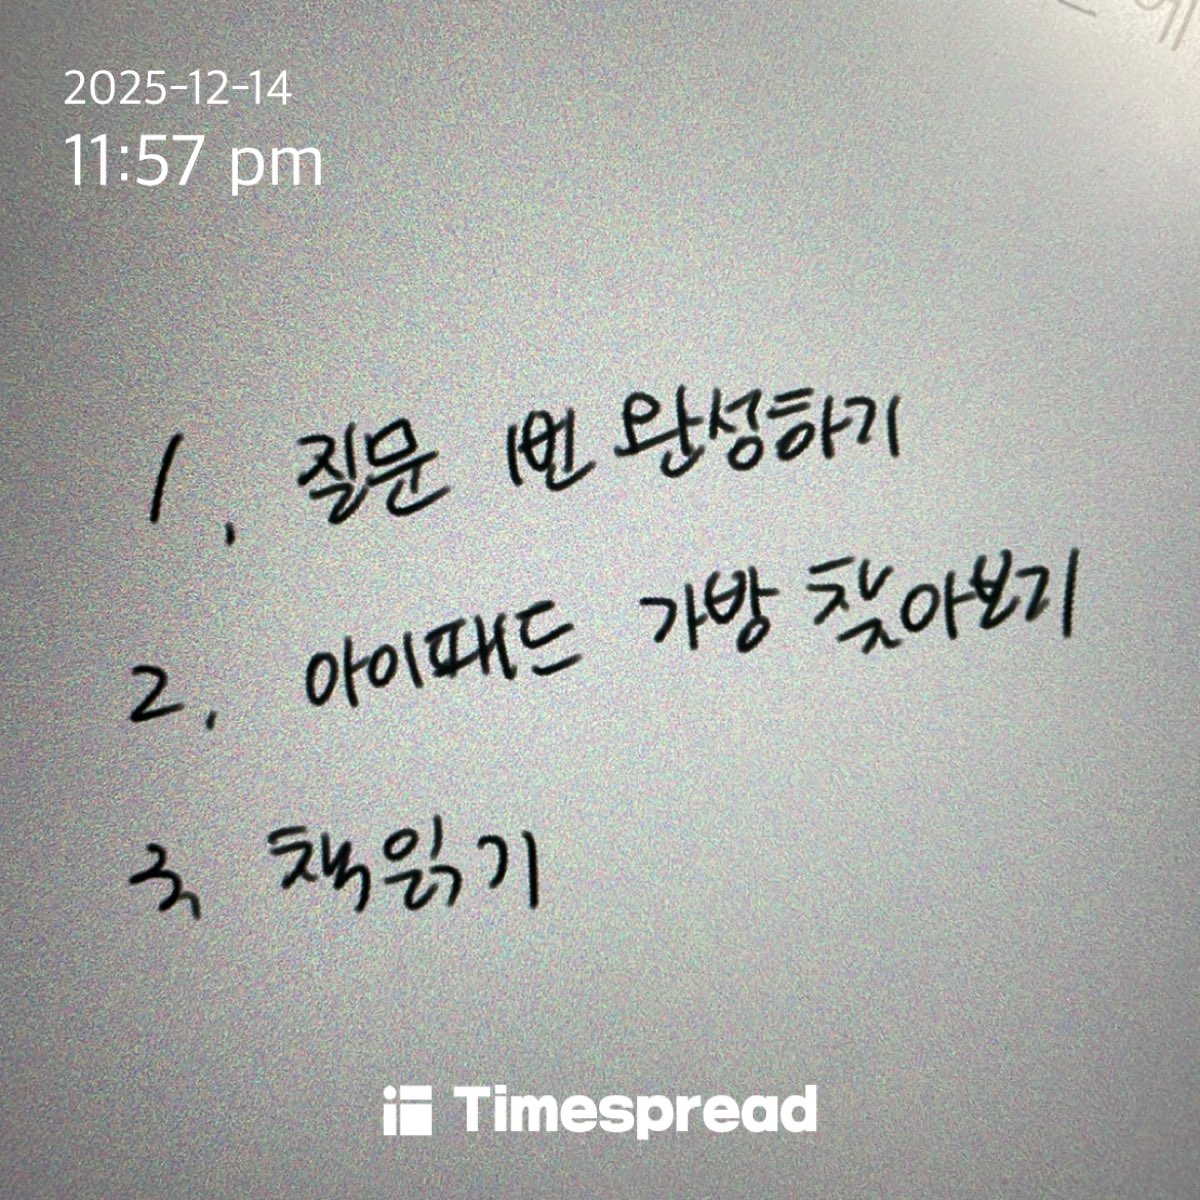 2025-12-14
11:57 pm
1. 질문 1번 완성하기
2. 아이패드 가방 찾아보기
3. 책읽기
Timespread